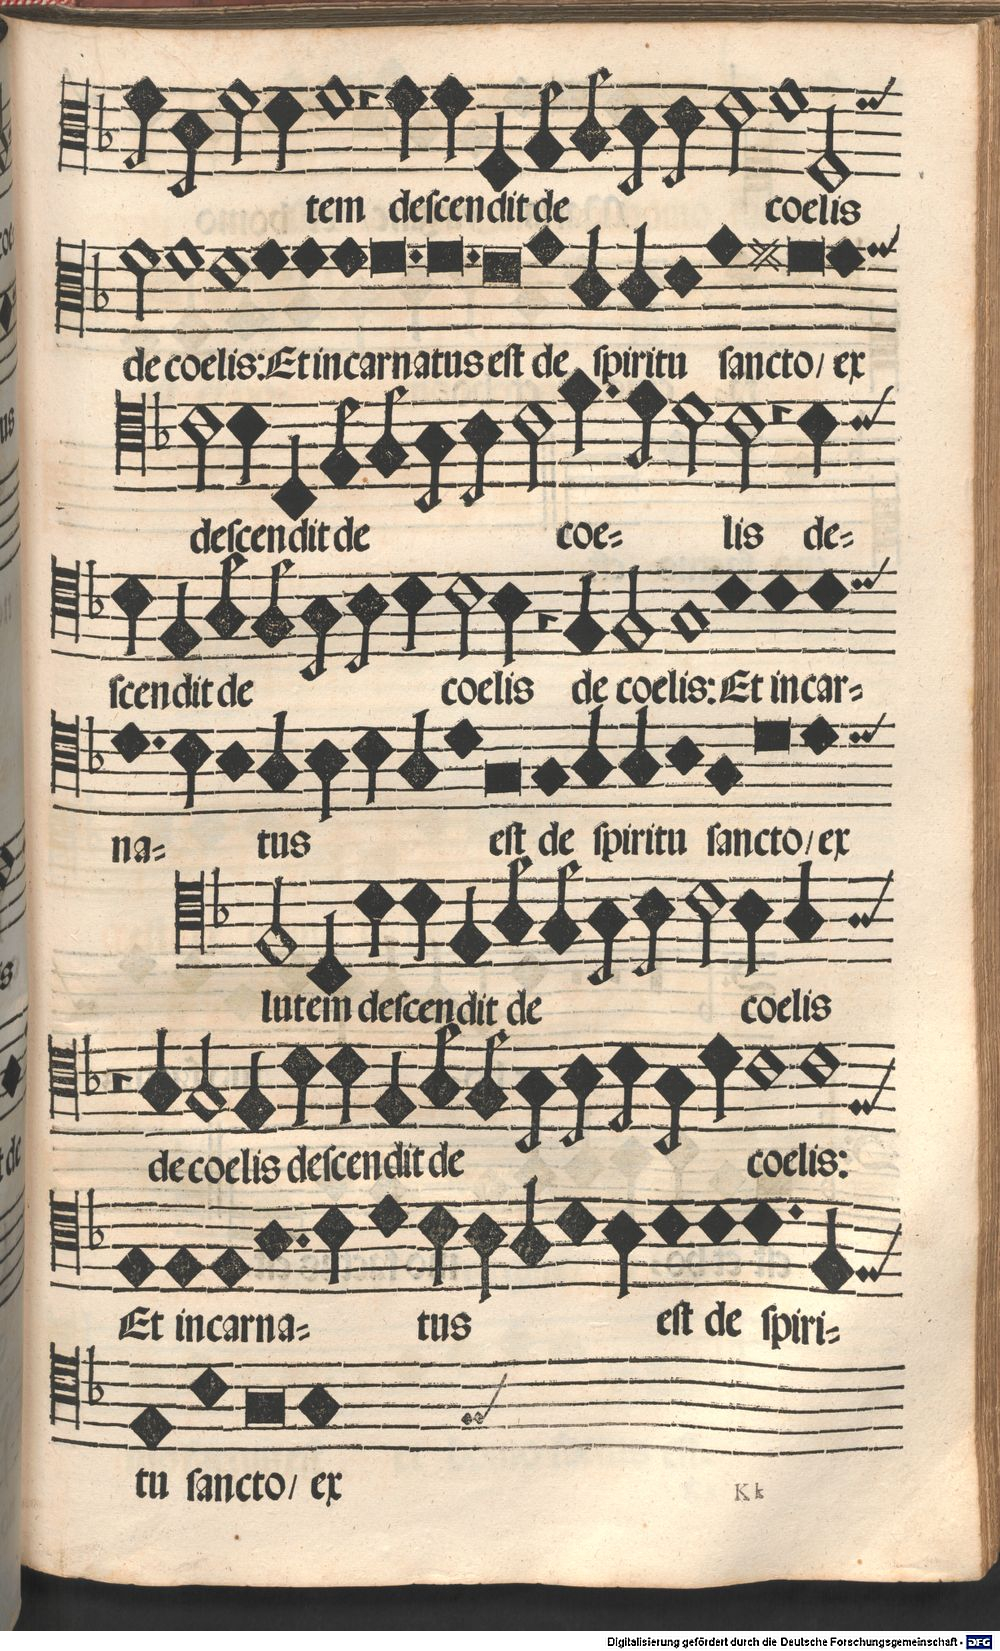 tem deſcendit de coelis
de coelis: Et incarnatus eſt de ſpiritu ſancto/ ex
deſcendit de coe= lis de=
ſcendit de coelis de coelis: Et incar=
na= tus eſt de ſpiritu ſancto/ ex
lutem deſcendit de coelis
de coelis deſcendit de coelis:
Et incarna= tus eſt de ſpiri=
tu ſancto/ ex
Kk
Digitalisierung gefördert durch die Deutsche Forschungsgemeinschaft - DFG